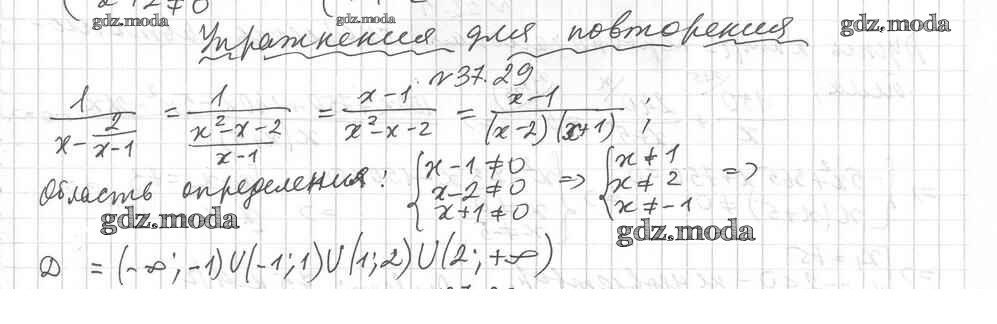 gdz.moda gdz.moda
Упражнения для повторения gdz.moda
№37.29
1/(x - 2/(x-1)) = 1/((x²-x-2)/(x-1)) = (x-1)/(x²-x-2) = (x-1)/((x-2)(x+1)) ;
Область определения: { x-1≠0 x-2≠0 x+1≠0 => { x≠1 x≠2 x≠-1 =>
gdz.moda gdz.moda
D = (-∞; -1)U(-1; 1)U(1; 2)U(2; +∞)